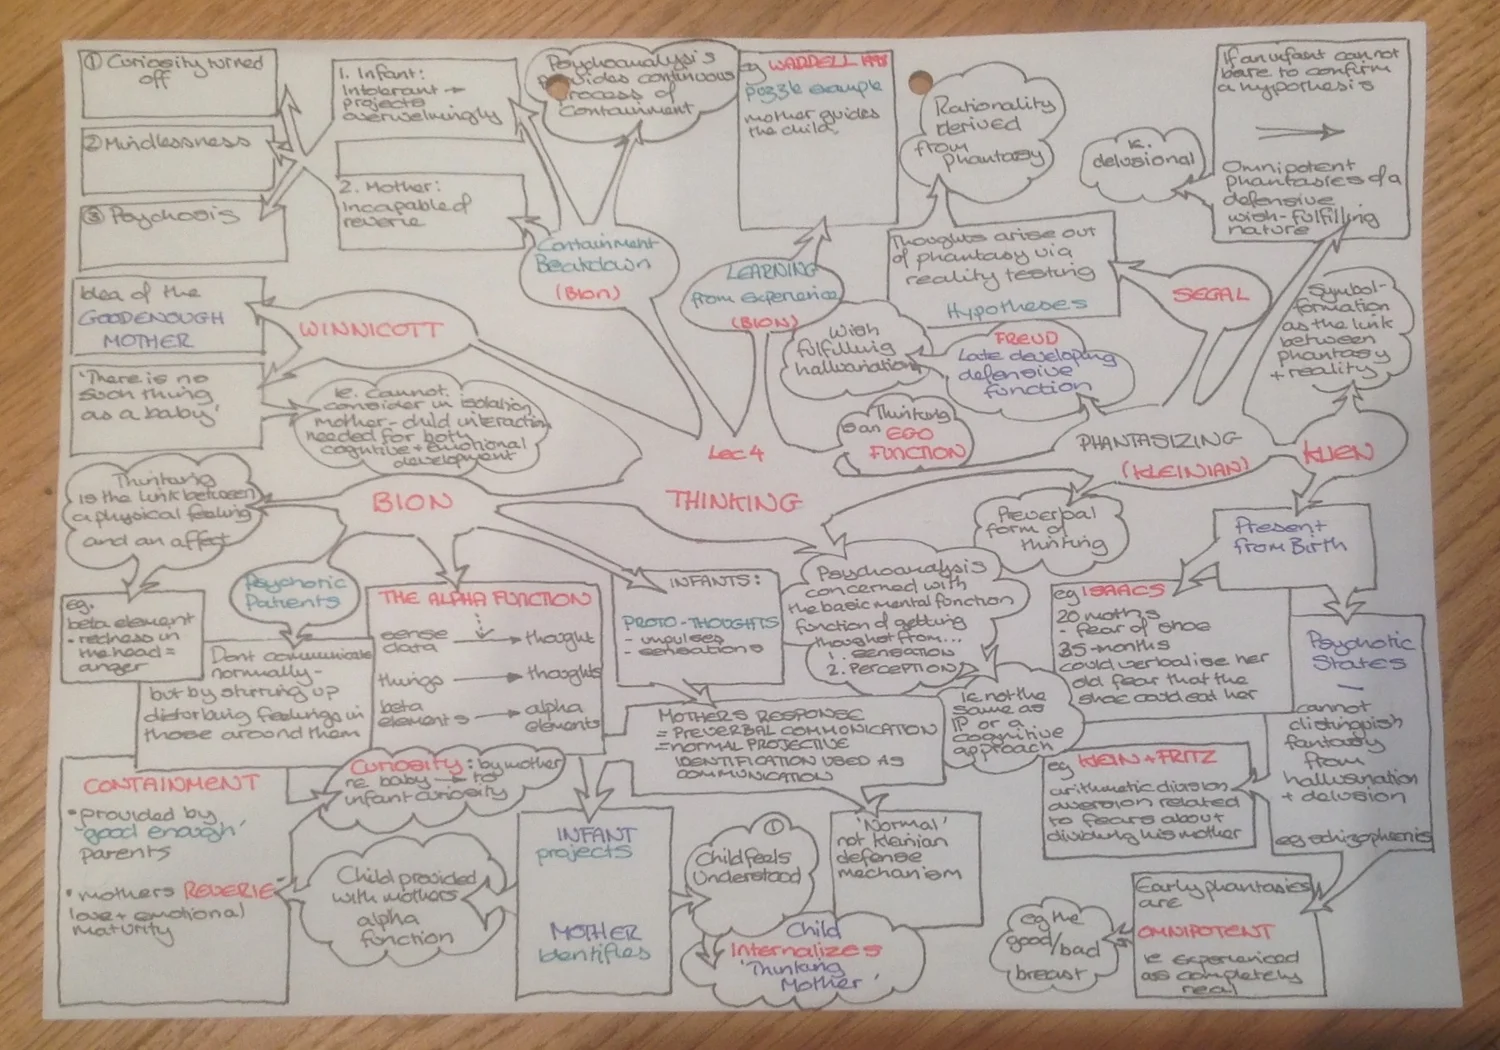 ① Curiosity turned
off
② Mindlessness
③ Psychosis
1. Infant:
Intolerant →
projects
overwelmingly
2. Mother:
Incapable of
reverie
Psychoanalysis
provides continuous
process of
Containment
Containment
Breakdown
(Bion)
eg WADDELL
puzzle example
mother guides
the child.
LEARNING
from experience
(BION)
Rationality
derived
from
phantasy
Thoughts arise out
of phantasy via
reality testing
Hypotheses
SEGAL
ie.
delusional
If an infant cannot
bare to confirm
a hypothesis
Omnipotent
phantasies of a
defensive
wish-fulfilling
nature
Symbol-
formation
as the link
between
phantasy
+ reality
Idea of the
GOOD ENOUGH
MOTHER
WINNICOTT
'There is no
such thing
as a baby'
ie. cannot
consider in isolation
mother-child interaction
needed for both
cognitive + emotional
development
Wish
fulfilling
hallucination
FREUD
Late developing
defensive
function
Thinking
is an EGO
FUNCTION
PHANTASIZING
(KLEINIAN)
KLIEN
Lec 4
THINKING
BION
Thinking
is the link between
a physical feeling
and an affect
eg.
beta element
- redness in
the head =
anger
Psychotic
Patients
Dont communicate
normally -
but by stirring up
disturbing feelings in
those around them
THE ALPHA FUNCTION
sense
data → thought
things → thoughts
beta
elements → alpha
elements
INFANTS:
PROTO-THOUGHTS
- impulses
- sensations
Psychoanalysis
concerned with
the basic mental function
function of getting
thought from...
1. sensation
2. Perception
ie not the
same as
IP or a
cognitive
approach
Preverbal
form of
thinking
Present
from Birth
eg ISAACS
20 moths
- fear of shoe
35-months
could verbalise her
old fear that the
shoe could eat her
Psychotic
States
—
cannot
distinguish
fantasy
from
hallusination
+ delusion
eg schizophrenis
eg KLEIN + FRITZ
arithmetic division
aversion related
to fears about
dividing his mother
Early phantasies
are
OMNIPOTENT
ie experienced
as completely
real
eg the
good/bad
breast
MOTHERS RESPONSE
= PREVERBAL COMMUNICATION
= NORMAL PROJECTIVE
IDENTIFICATION USED AS
COMMUNICATION
'Normal'
not kleinian
defense
mechanism
CONTAINMENT
• provided by
'good enough'
parents
• mothers REVERIE
love + emotional
maturity
Curiosity: by mother
re baby → to
infant curiosity
Child provided
with mothers
alpha
function
INFANT
projects
MOTHER
Identifies
①
Child feels
Understood
Child
Internalizes
'Thinking
Mother'